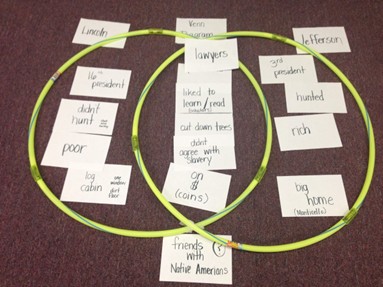 Lincoln
Venn
Diagram
Jefferson
lawyers
16th
president
3rd
president
didnt
hunt
liked to
learn/read
hunted
cut down trees
poor
didnt
agree with
slavery
rich
log
cabin
one
window
dirt
floor
on
$
(coins)
big
home
(Monticello)
friends
with
Native Amerians